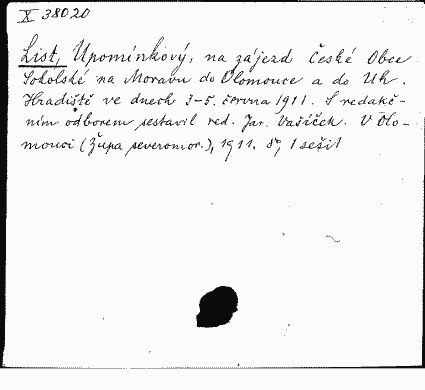 X 38020
List, Upomínkový, na zájezd České Obce
Sokolské na Moravu do Olomouce a do Uh.
Hradiště ve dnech 3-5. června 1911. S redakč-
ním odborem sestavil red. Jar. Vašíček. V Olo-
mouci (Župa severomor.), 1911. 8°, 1 sešit